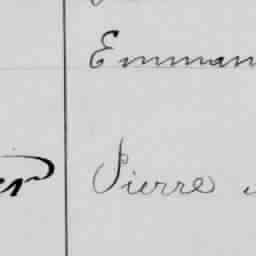 Emman
er Pierre